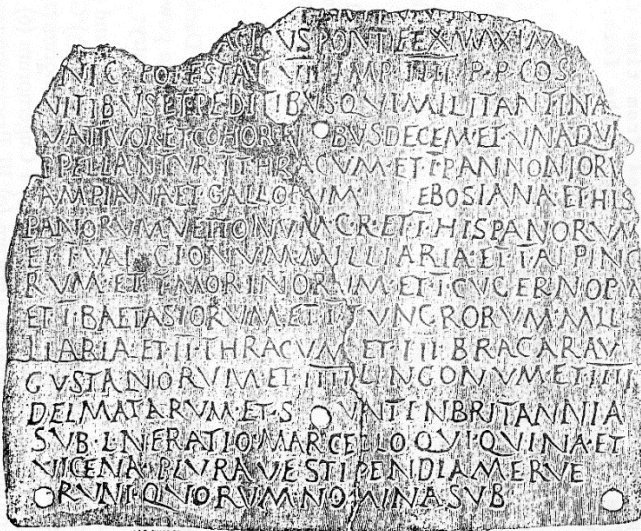 ACICVS PONTIFEX MAXIM
NIC POTESTAT VII IMP IIII P P COS
VITIBVS ET PEDITIBVS QVI MILITANT IN A
VATTVOR ET COHORTIBVS DECEM ET VNA QV
PELLANTVR I THRACVM ET I PANNONIORV
AMPIANA ET GALLORVM EBOSIANA ET HIS
PANORVM VETTONVM C R ET I HISPANORVM
ET I VALCIONVM MILLIARIA ET I ALPINO
RVM ET I MORINORVM ET I CVGERNORV
ET I BAETASIORVM ET I TVNGRORVM MIL
LIARIA ET II THRACVM ET III BRACARAV
GVSTANIORVM ET IIII LINGONVM ET IIII
DELMATARVM ET SVNT IN BRITANNIA
SVB L NERATIO MARCELLO QVI QVINA ET
VICENA PLVRAVE STIPENDIA MERVE
RVNT QVORVM NOMINA SVB